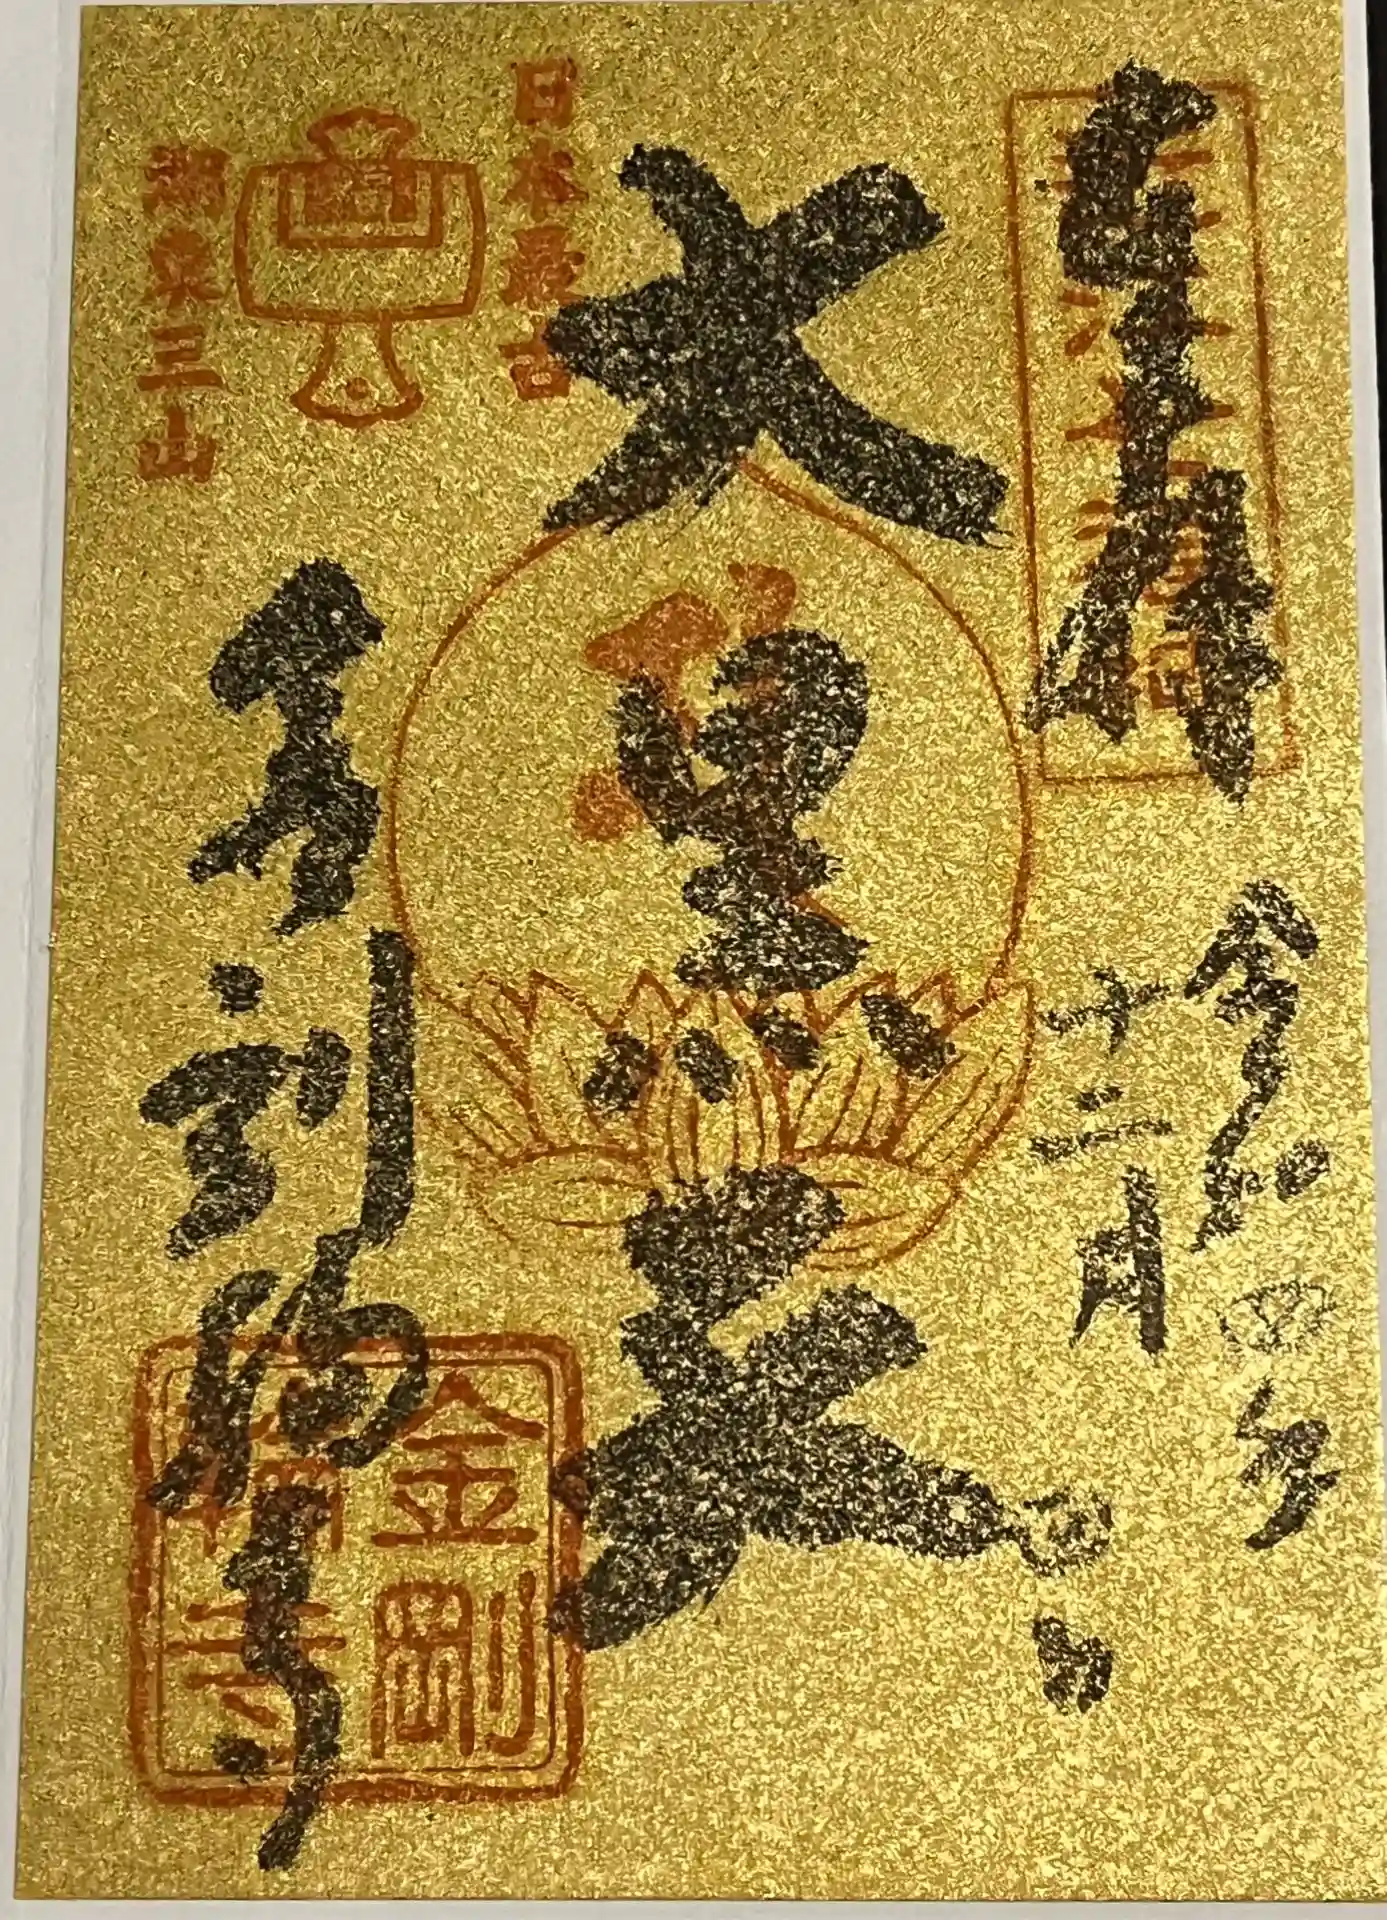 奉拝
令和四年
十二月
日
大黒天
日本最古
湖東三山
金剛輪寺
金剛
輪寺